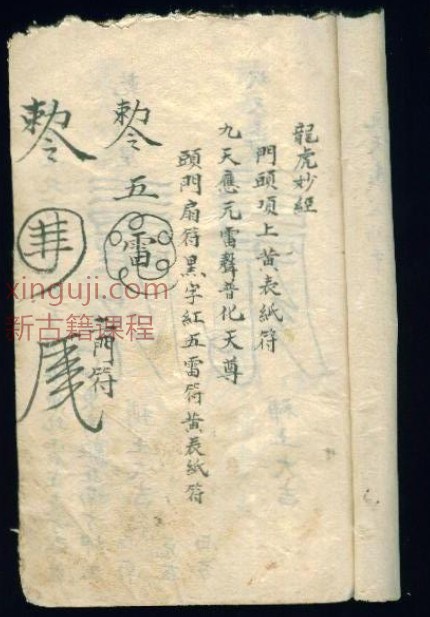 龍虎妙經
門頭項上黃表紙符
九天應元雷聲普化天尊
頭門扇符黑字紅五雷符黃表紙符
勅令五雷
門符
勅令
xinguji.com
新古籍课程